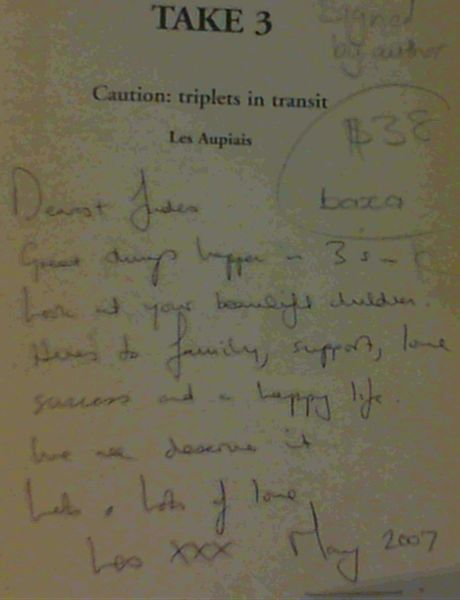 TAKE 3
Signed
by author
Caution: triplets in transit
Les Aupiais
$38
baxa
Dearest Judes
Great things happen in 3s -
Look at your beautiful children.
Heres to family, support, love
success and a happy life.
We all deserve it
Lots & lots of love
Les XXX May 2007